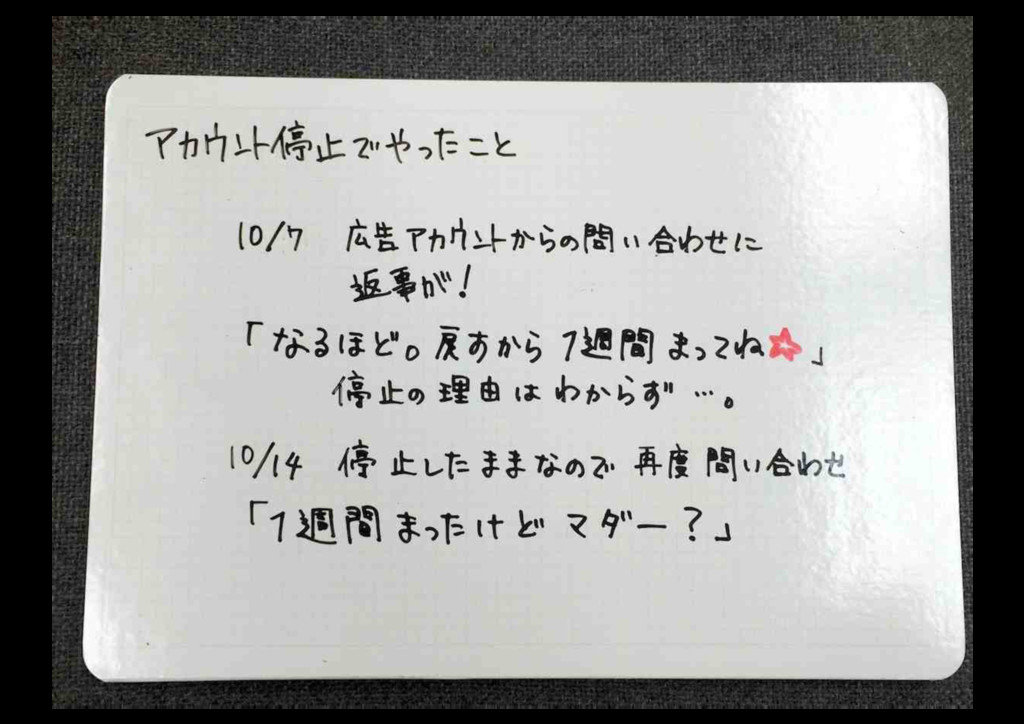 アカウント停止でやったこと
10/7 広告アカウントからの問い合わせに
返事が!
「なるほど。戻すから1週間まってね☆」
停止の理由はわからず…。
10/14 停止したままなので再度問い合わせ
「1週間まったけどマダー?」